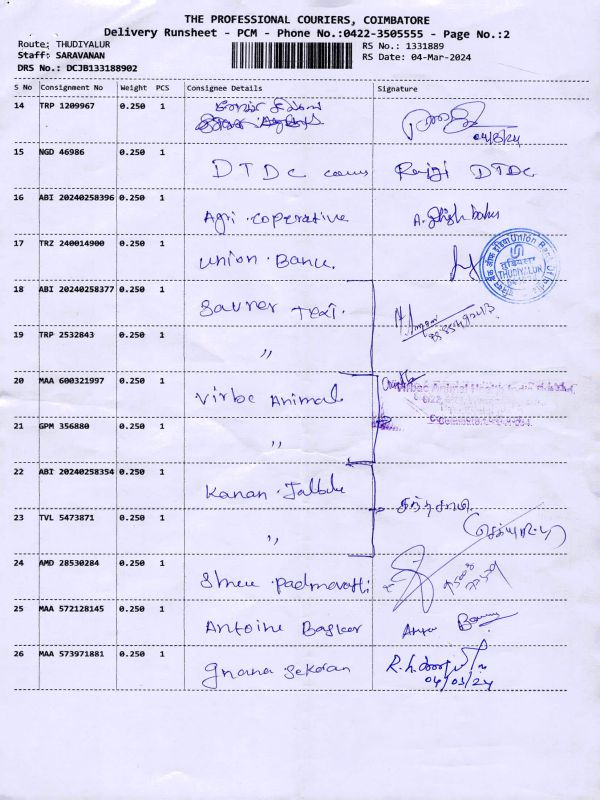 THE PROFESSIONAL COURIERS, COIMBATORE
Delivery Runsheet - PCM - Phone No.:0422-3505555 - Page No.:2
Route: THUDIYALUR
RS No.: 1331889
Staff: SARAVANAN
RS Date: 04-Mar-2024
DRS No.: DCJB133188902
S No Consignment No Weight PCS Consignee Details Signature
14 TRP 1209967 0.250 1
04/3/24
15 NGD 46986 0.250 1 DTDC DTDC
16 ABI 20240258396 0.250 1 Agri. Coperative
17 TRZ 240014900 0.250 1 Union
Union Bank Of India
THUDIYALUR
18 ABI 20240258377 0.250 1 Saurer Text.
19 TRP 2532843 0.250 1 〃
20 MAA 600321997 0.250 1 Virbc Animal
Virbac Animal Health
21 GPM 356880 0.250 1 〃
Coimbatore
22 ABI 20240258354 0.250 1 Kanan
23 TVL 5473871 0.250 1 〃
24 AMD 28530284 0.250 1 Shree
25 MAA 572128145 0.250 1 Antoine Baskar
26 MAA 573971881 0.250 1 Gnana Sekaran
04/03/24